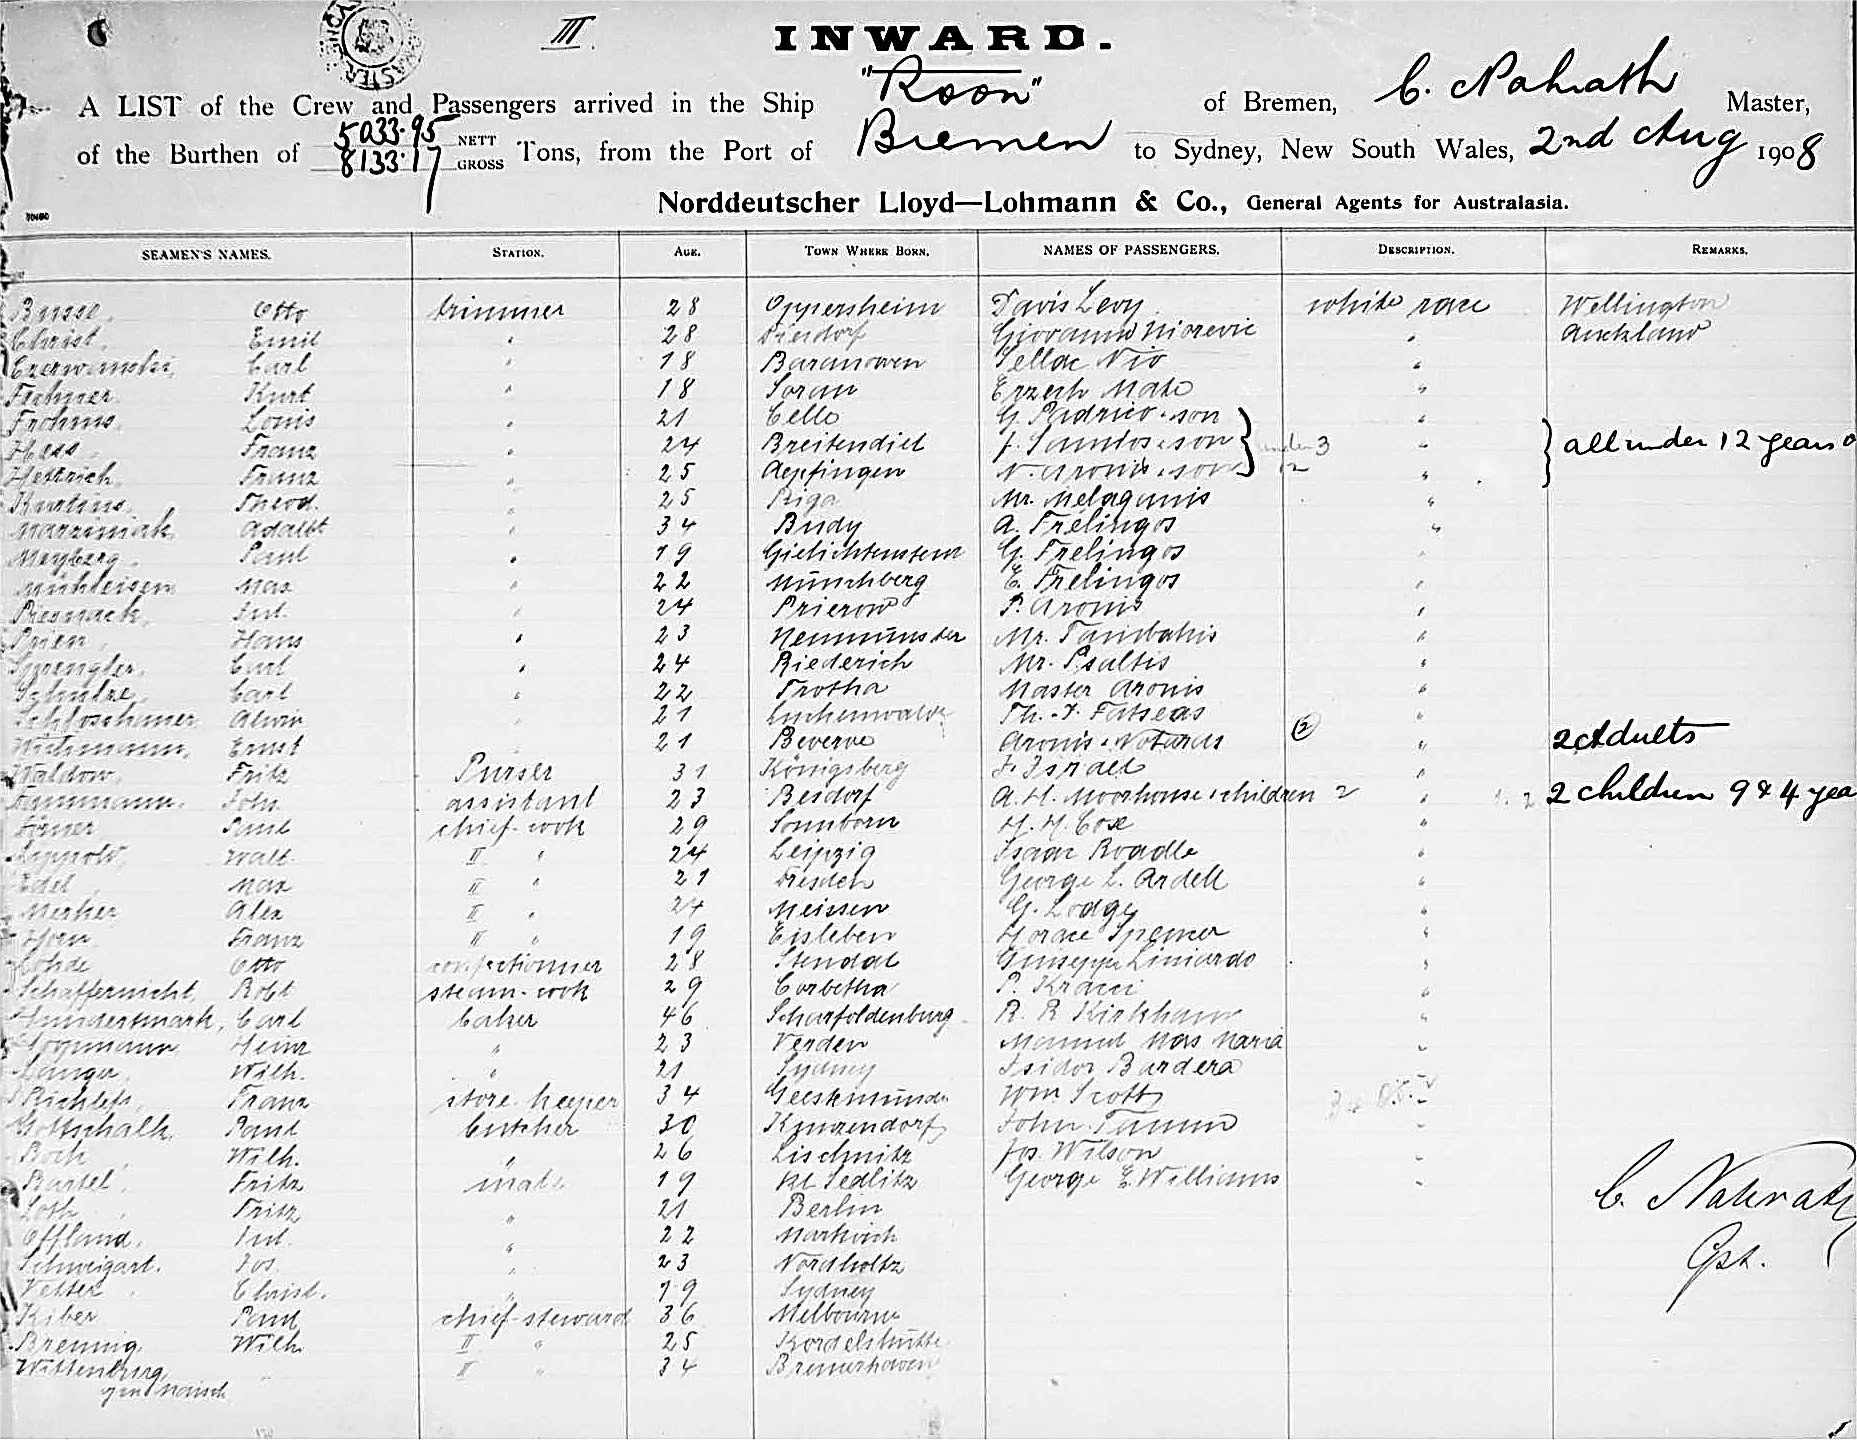 III.
INWARD.
A LIST of the Crew and Passengers arrived in the Ship "Roon" of Bremen, C. Nahrath Master,
of the Burthen of 5033.95 NETT 8133.17 GROSS Tons, from the Port of Bremen to Sydney, New South Wales, 2nd Aug 1908
Norddeutscher Lloyd—Lohmann & Co., General Agents for Australasia.
SEAMEN'S NAMES. STATION. AGE. TOWN WHERE BORN. NAMES OF PASSENGERS. DESCRIPTION. REMARKS.
Busse, Otto trimmer 28 Oppersheim Davis Levy white race Wellington
Christ, Emil " 28 Giovanni " Auckland
Czerwinski, Carl " 18 Baranowen Vio "
Fehmer Kurt " 18 Soran Mate "
Frohms, Louis " 21 Celle G. Padrico & son "
Hess, Franz " 24 Breitendiel J. Santos & son 3 " all under 12 years
Hettrich, Franz " 25 Aepfingen N. Aronis & son 12 "
Kurtins, Theod. " 25 Riga Mr. Melaganis "
Adalbt " 34 Budy A. Frelingos "
Meyberg, Paul " 19 G. Frelingos "
Mühleisen Max " 22 Münchberg E. Frelingos "
Jul. " 24 Prierow P. Aronis "
Prien, Hans " 23 Neumünster Mr. "
Sprengler, Carl " 24 Riederich Mr. Psaltis "
Schulze Carl " 22 Trotha Master Aronis "
Alwin " 21 Luckenwalde Th. J. Fatseas "
Wichmann, Ernst " 21 Beverne Aronis & Notaras (2) " 2 Adults
Waldow, Fritz Purser 31 Königsberg J. Israel "
Joh. assistant 23 Beidorf A. H. Moorhouse & children 2 " 2 children 9 & 4 yea
Paul chief-cook 29 Sonnborn H. H. Cose "
Walt. II " 24 Leipzig Isaac Roadle "
Edel, Max II " 21 Dresden George L. Ardell "
Merker Alex II " 24 Meissen G. Lodge "
Horn Franz II " 19 Eisleben Horace Spencer "
Lohde Otto confectionner 28 Stendal Giuseppe Liniardo "
Schaffernicht, Robt steam-cook 29 Corbetha P. "
Hundertmark, Carl baker 46 Scharfoldenburg R. R. Kirkham "
Heinr " 23 Verden Manuel Mas Maria "
Langer, Wilh. " 21 Sydney Isidor Bardera "
Franz store-keeper 34 Geestemünde Wm. Scott "
Gottschalk, Paul butcher 30 Kunzendorf John "
Bock, Wilh. " 26 Lischnitz Jos. Wilson "
Bartel, Fritz mate 19 Kl. Sedlitz George E. Williams "
Loth, Fritz " 21 Berlin
Offland, Jul. " 22 Markirch C. Nahrath
Schweigart. Jos. " 23 Nordholtz Cpt.
Vetter, Christ. " 19 Sydney
Kiber Paul chief-steward 36 Melbourne
Brennig, Wilh. II " 25 Kordelshütte
Wittenburg, " II " 34 Bremerhaven
gen. Harisch